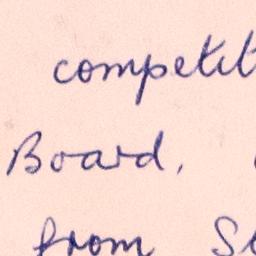 competit
Board,
from S